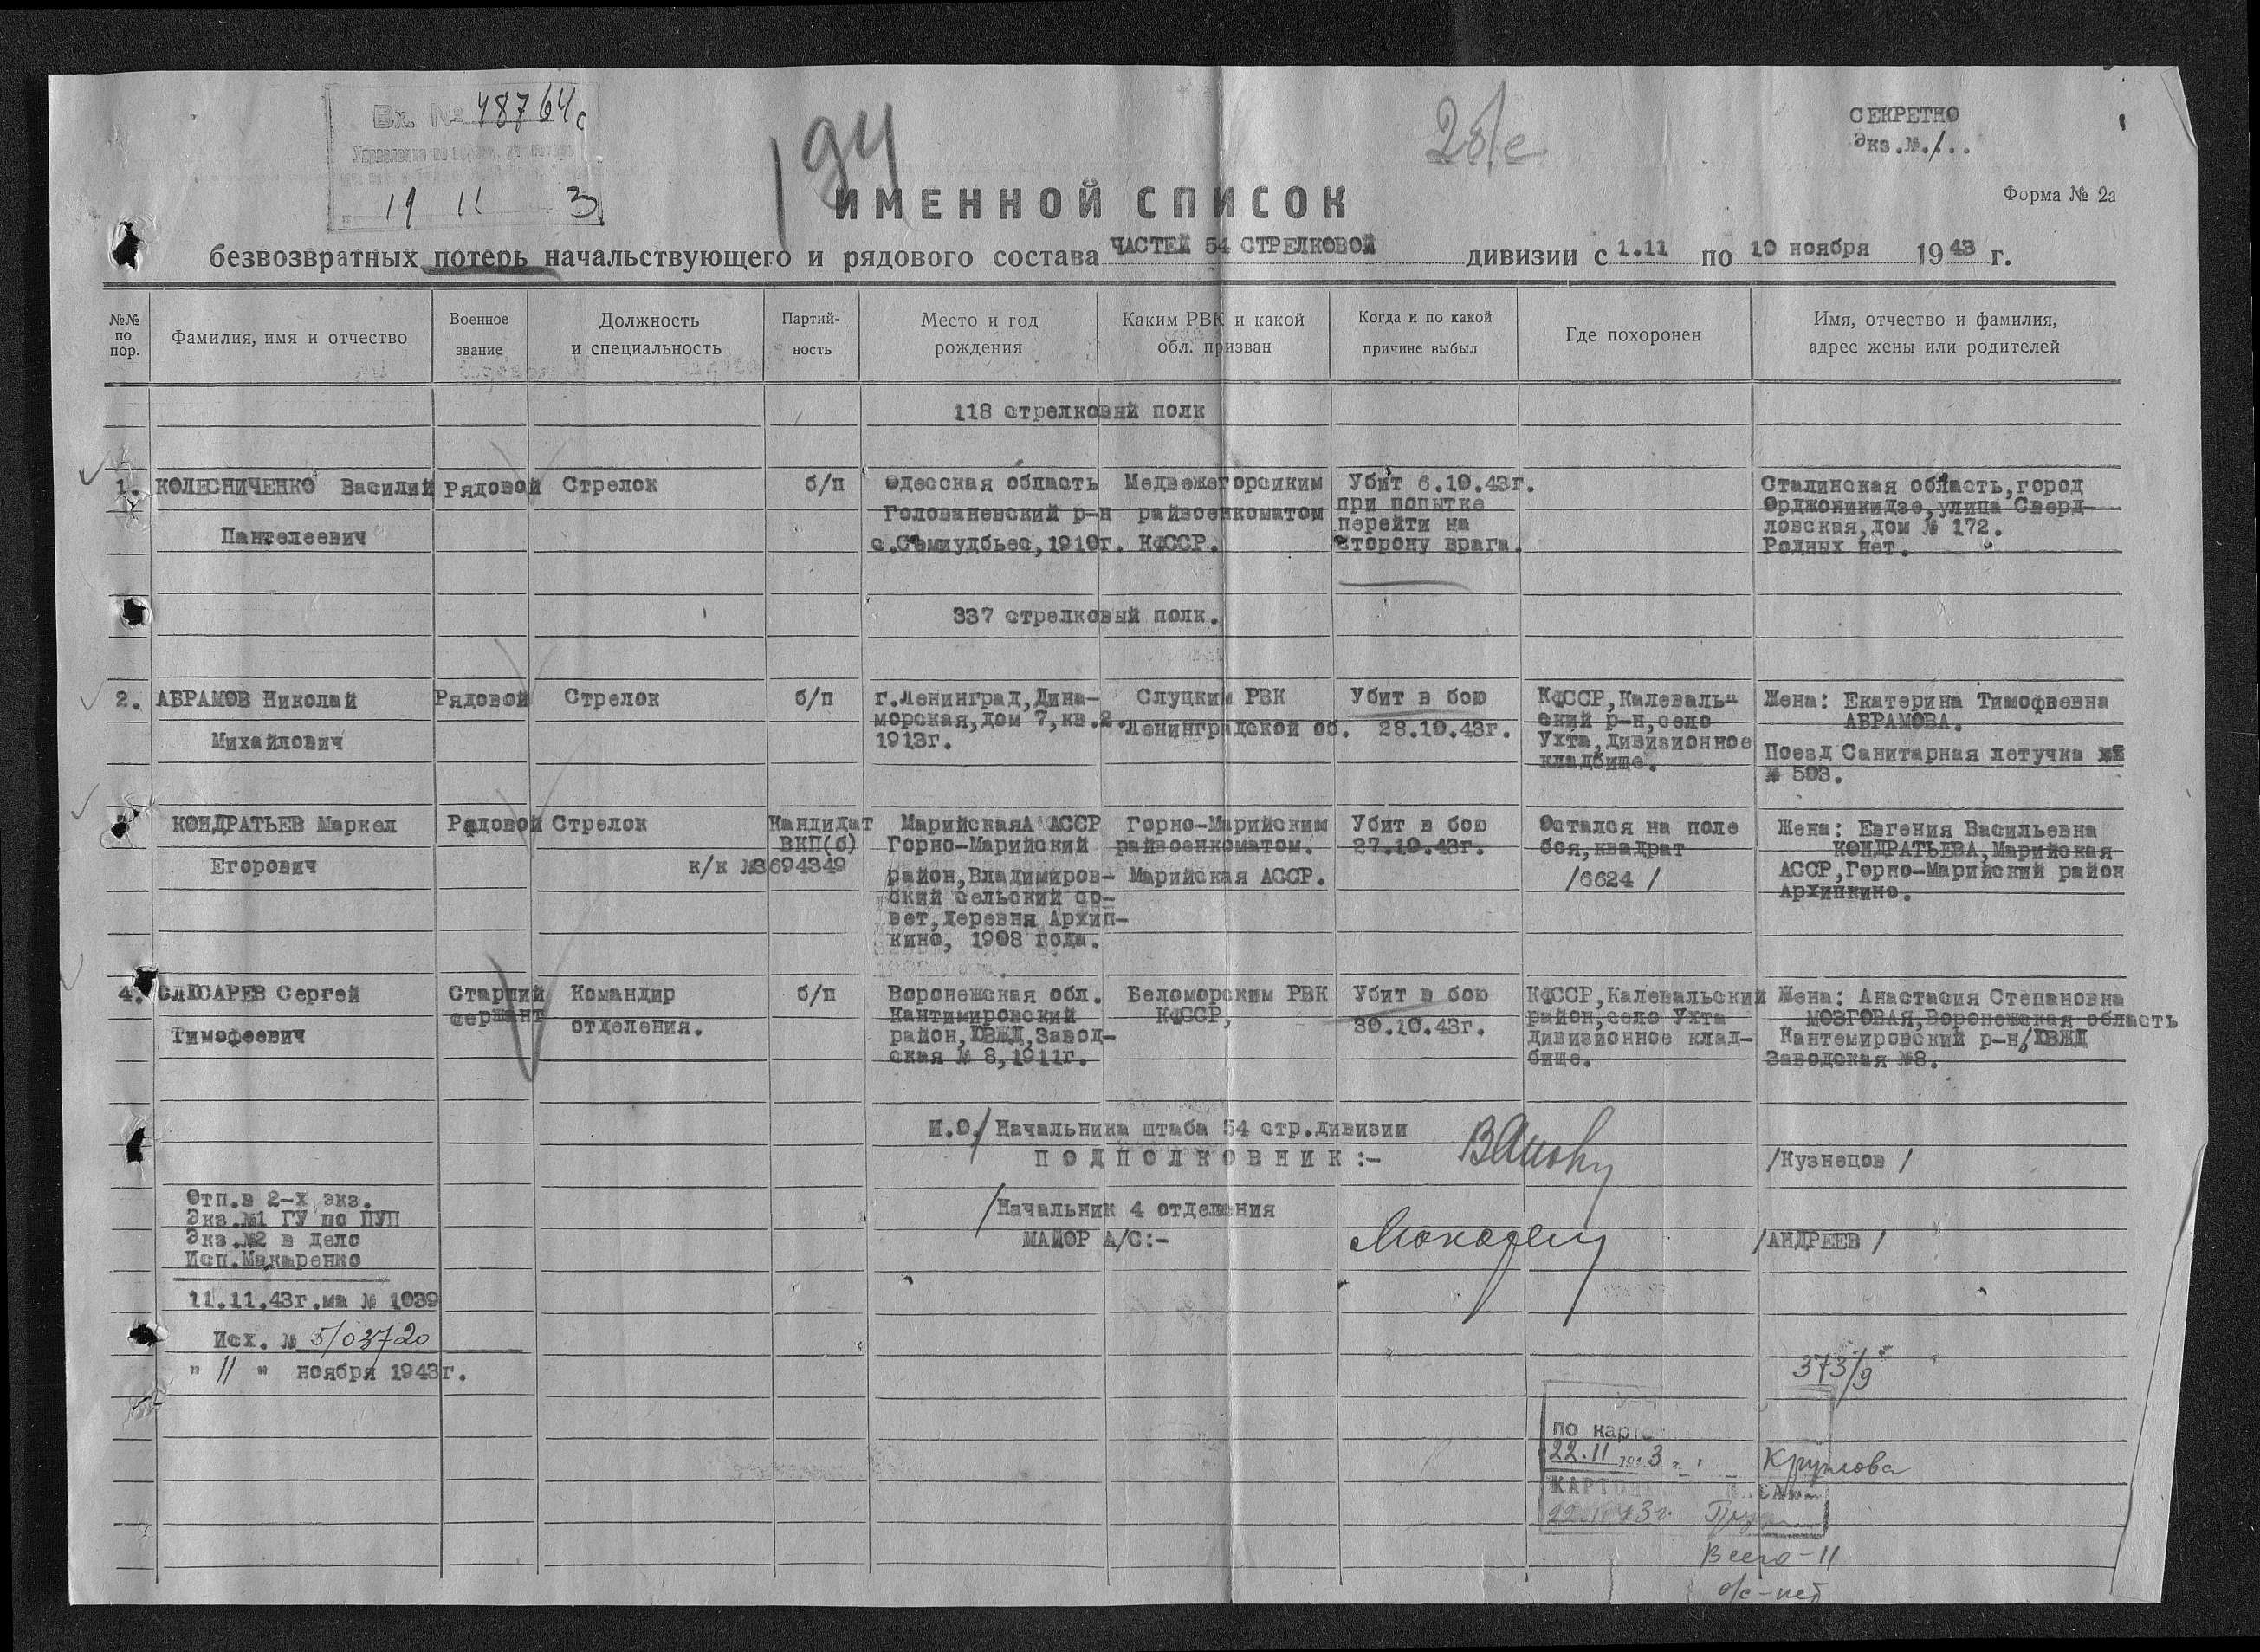 Вх. № 48764с
19 11 3
194
СЕКРЕТНО
Экз.№.1..
ИМЕННОЙ СПИСОК
Форма № 2а
безвозвратных потерь начальствующего и рядового состава ЧАСТЕЙ 54 СТРЕЛКОВОЙ дивизии с 1.11 по 10 ноября 1943 г.
№№ по пор.
Фамилия, имя и отчество
Военное звание
Должность и специальность
Партий-ность
Место и год рождения
Каким РВК и какой обл. призван
Когда и по какой причине выбыл
Где похоронен
Имя, отчество и фамилия, адрес жены или родителей
118 стрелковый полк
1. КОЛЕСНИЧЕНКО Василий
Пантелеевич
Рядовой
Стрелок
б/п
Одесская область
Голованевский р-н
с.Семиудбьес,1910г.
Медвежегорсиким
райвоенкоматом
КФССР.
Убит 6.10.43г.
при попытке
перейти на
сторону врага.
Сталинская область,город
Орджоникидзе,улица Сверд-
ловская,дом № 172.
Родных нет.
337 стрелковый полк.
2. АБРАМОВ Николай
Михайлович
Рядовой
Стрелок
б/п
г.Ленинград,Дина-
морская,дом 7,кв.2.
1913г.
Слуцким РВК
Ленинградской об.
Убит в бою
28.10.43г.
КФССР,Калеваль-
ский р-н,село
Ухта,дивизионное
кладбище.
Жена: Екатерина Тимофвевна
АБРАМОВА.
Поезд Санитарная летучка
№ 503.
КОНДРАТЬЕВ Маркел
Егорович
Рядовой
Стрелок
Кандидат
ВКП(б)
к/к №3694349
МарийскаяА АССР
Горно-Марийский
район,Владимиров-
ский сельский со-
вет,деревня Архип-
кино, 1908 года.
Горно-Марийским
райвоенкоматом.
Марийская АССР.
Убит в бою
27.10.43г.
Остался на поле
боя,квадрат
/6624 /
Жена: Евгения Васильевна
КОНДРАТЬЕВА,Марийская
АССР,Горно-Марийский район
Архипкино.
4. СЛЮСАРЕВ Сергей
Тимофеевич
Старший
сержант
Командир
отделения.
б/п
Воронежская обл.
Кантимировский
район,ЮВЖД,Завод-
ская № 8,1911г.
Беломорским РВК
КФССР,
Убит в бою
30.10.43г.
КФССР,Калевальский
район,село Ухта
дивизионное клад-
бище.
Жена: Анастасия Степановна
МОЗГОВАЯ,Воронежская область
Кантемировский р-н,ЮВЖД
Заводская №8.
И.О./ Начальника штаба 54 стр.дивизии
ПОДПОЛКОВНИК:-
/Кузнецов /
/Начальник 4 отделения
МАЙОР А/С:-
/АНДРЕЕВ /
Отп.в 2-х экз.
Экз.№1 ГУ по ПУП
Экз.№2 в дело
Исп.Макаренко
11.11.43г.ма № 1039
Исх. № 5/03720
" 11 " ноября 1943г.
373/9
по карт
22.11 1943 г.
Круглова
КАРТО
22.11.43г
Всего - 11
о/с - нет